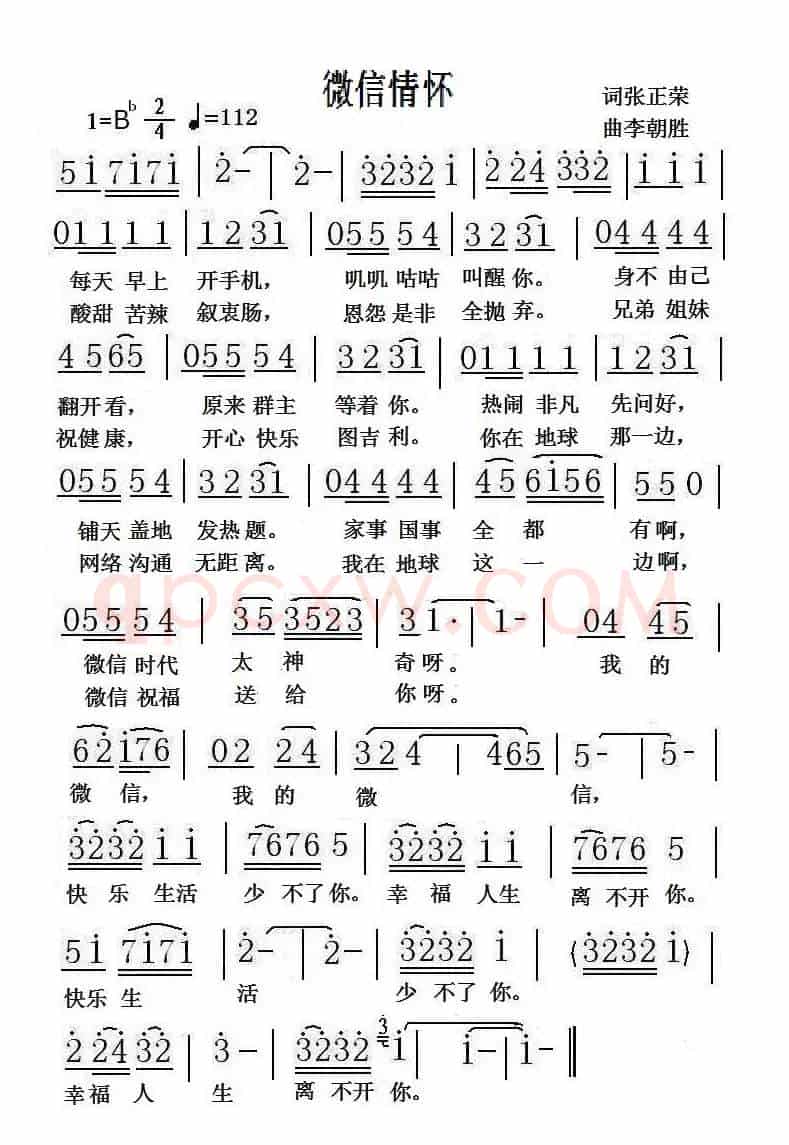 微信情怀
1=B♭ 2/4 ♩=112
词张正荣
曲李朝胜
5i 7i7i | 2̇- | 2̇- | 3̇2̇3̇2̇ i | 2̇ 2̇4̇ 3̇3̇2̇ | i i i |
0111 11 | 12 31 | 0555 54 | 32 31 | 0444 44 |
每天 早上 开手机， 叽叽 咕咕 叫醒 你。 身不 由己
酸甜 苦辣 叙衷肠， 恩怨 是非 全抛 弃。 兄弟 姐妹
4 565 | 0555 54 | 32 31 | 0111 11 | 12 31 |
翻开看， 原来 群主 等着 你。 热闹 非凡 先问好，
祝健康， 开心 快乐 图吉 利。 你在 地球 那一边，
0555 54 | 32 31 | 0444 44 | 45 6i56 | 55 0 |
铺天 盖地 发热 题。 家事 国事 全 都 有啊，
网络 沟通 无距 离。 我在 地球 这 一 边啊，
qpcxw.COM
0555 54 | 35 3523 | 3 1· | 1- | 04 45 |
微信 时代 太 神 奇呀。 我 的
微信 祝福 送 给 你呀。
62̇ i76 | 02 24 | 324 | 465 | 5- | 5- |
微 信， 我 的 微 信，
3̇2̇3̇2̇ i i | 7676 5 | 3̇2̇3̇2̇ i i | 7676 5 |
快 乐 生活 少 不了 你。 幸 福 人生 离 不开 你。
5i 7i7i | 2̇- | 2̇- | 3̇2̇3̇2̇ i | (3̇2̇3̇2̇ i) |
快乐 生 活 少 不了 你。
2̇ 2̇4̇ 3̇2̇ | 3̇- | 3̇2̇3̇2̇ 3̇ i | i- | i- ‖
幸福 人 生 离 不开 你。